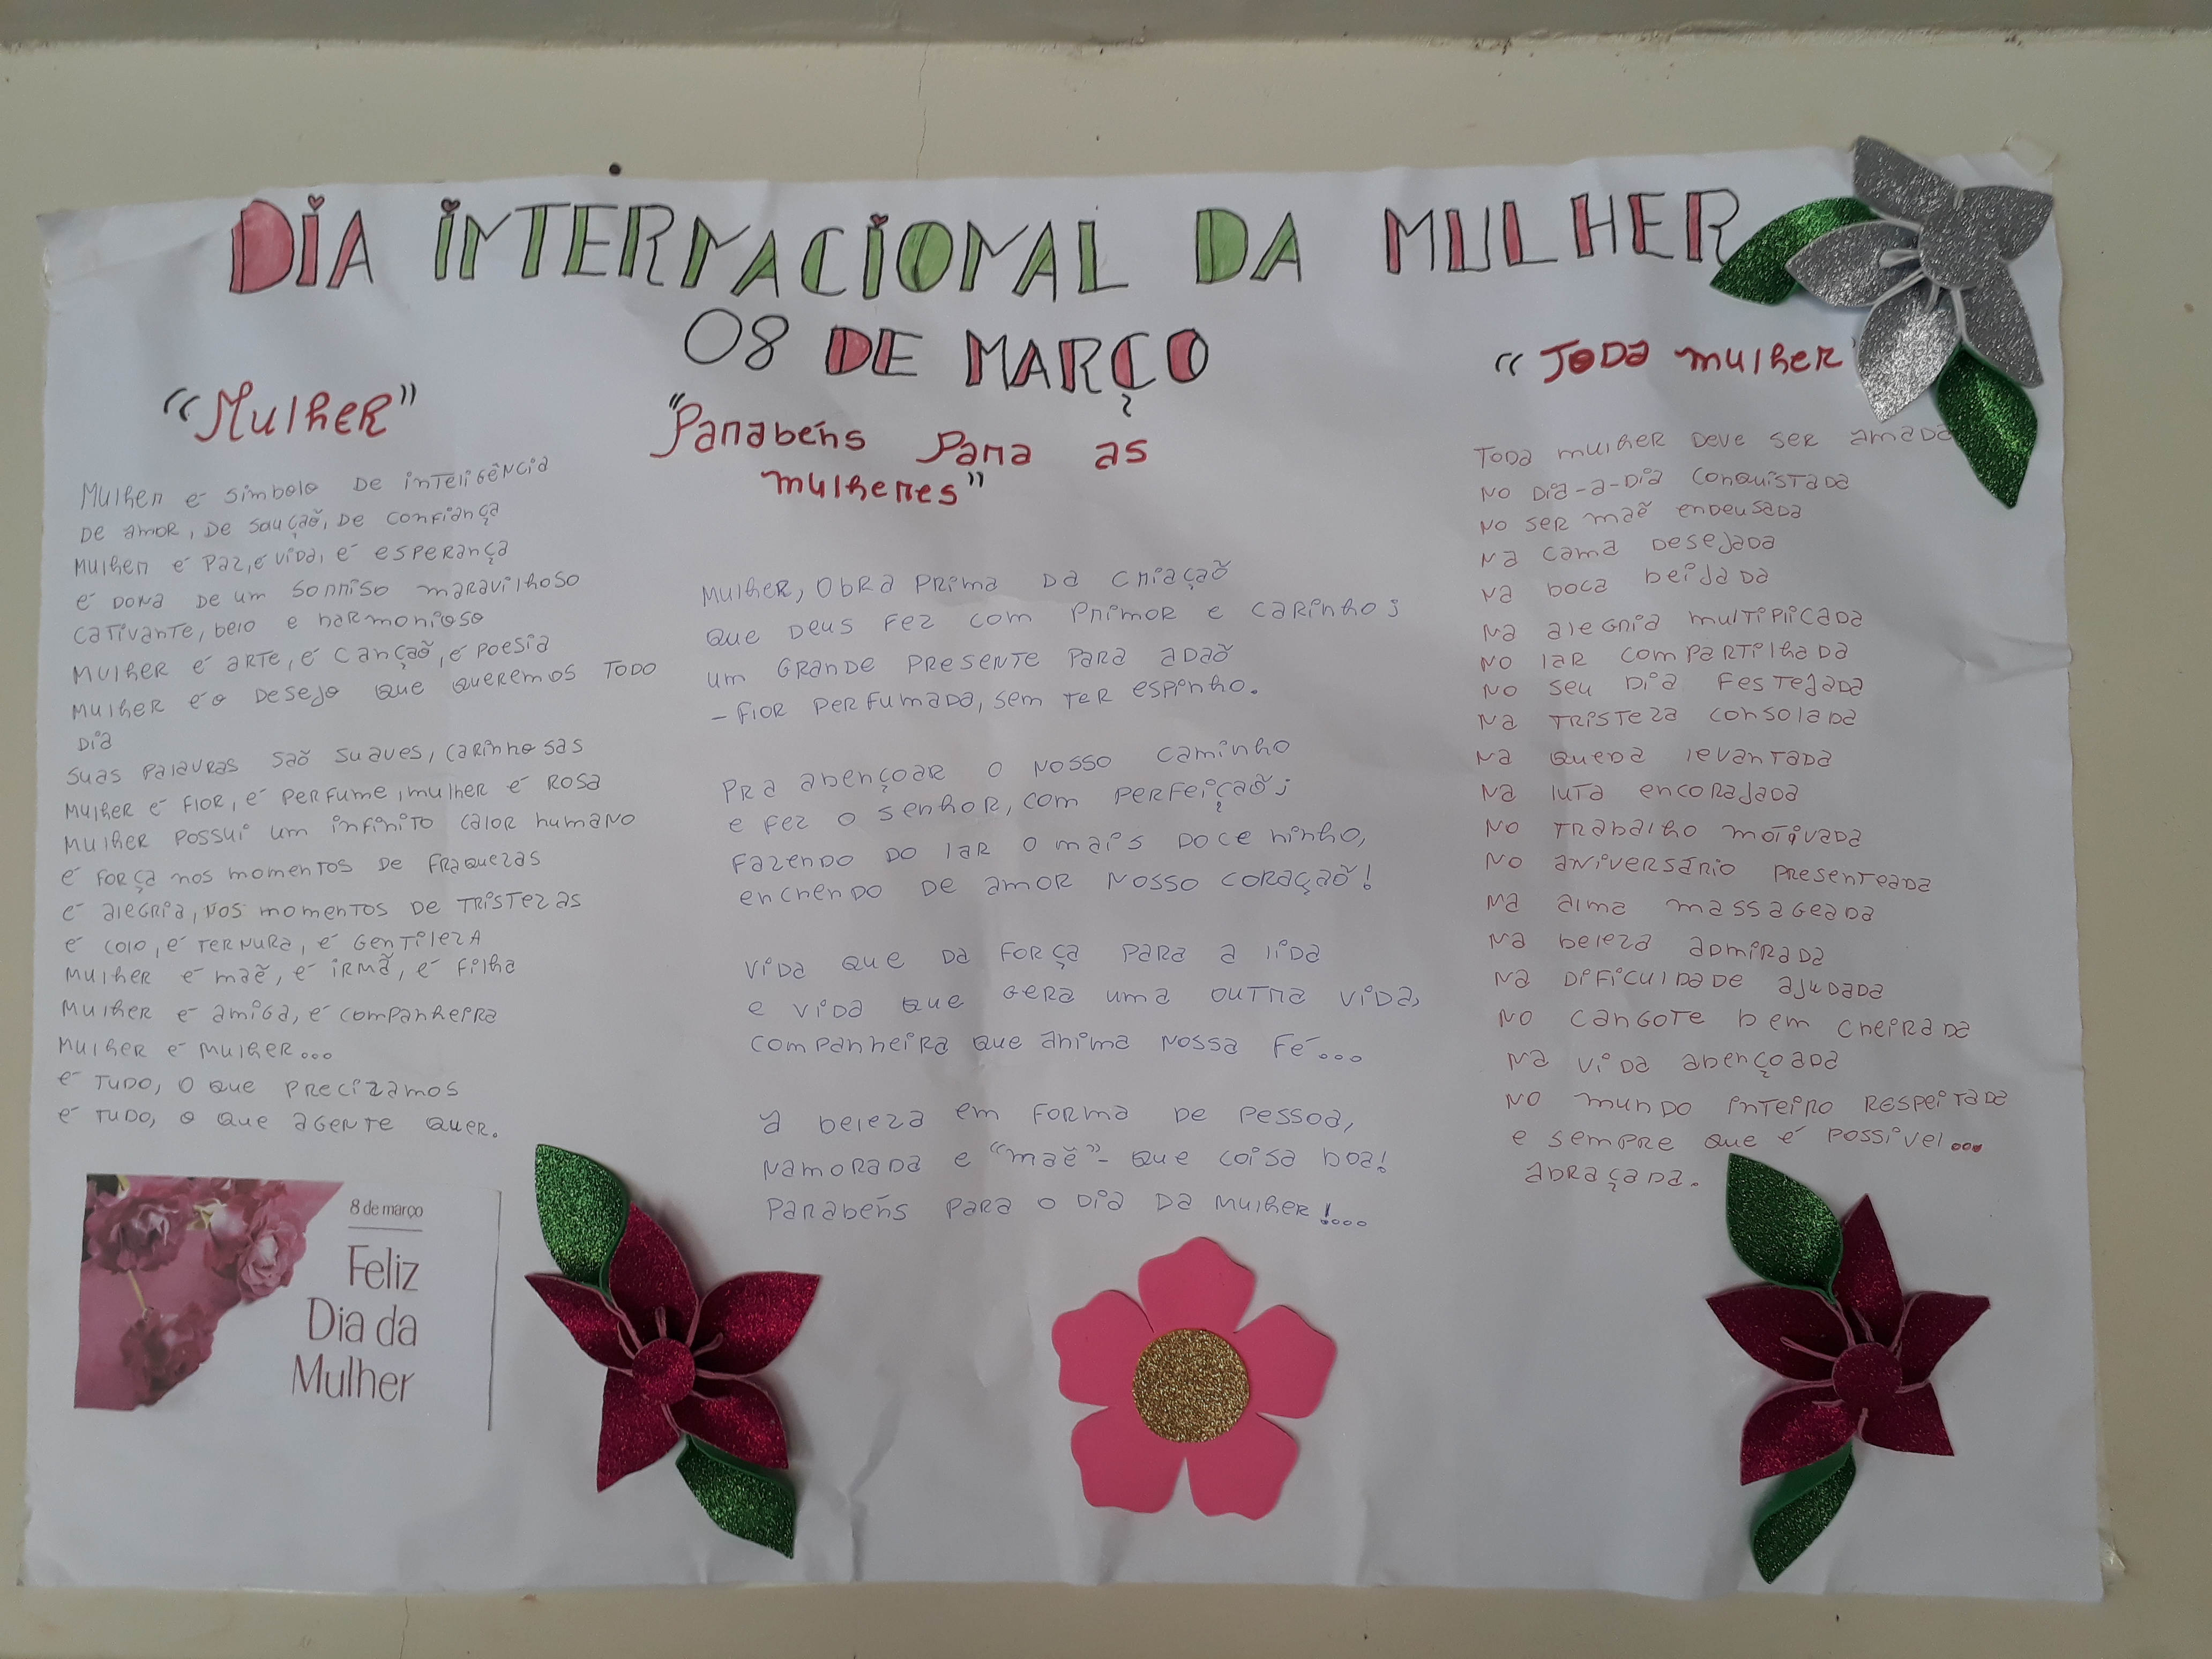 DIA INTERNACIONAL DA MULHER
08 DE MARÇO
"Mulher"
Mulher é simbolo de inteligência
de amor, de sauçaõ, de confiança
Mulher é paz, é vida, é esperança
é dona de um sorriso maravilhoso
cativante, belo e harmonioso
Mulher é arte, é cançaõ, é poesia
Mulher é o desejo que queremos todo
dia
suas palavras saõ suaves, carinhosas
Mulher é flor, é perfume, mulher é rosa
Mulher possui um infinito calor humano
é força nos momentos de fraquezas
é alegria, nos momentos de tristezas
é colo, é ternura, é gentileza
Mulher é maẽ, é irmã, é filha
Mulher é amiga, é companheira
Mulher é mulher...
é tudo, o que precizamos
é tudo, o que agente quer.
8 de março
Feliz
Dia da
Mulher
"Parabéns para as
mulheres"
Mulher, obra prima da criaçaõ
que Deus fez com primor e carinho;
um grande presente para adaõ
- flor perfumada, sem ter espinho.
Pra abençoar o nosso caminho
e fez o senhor, com perfeiçaõ;
fazendo do lar o mais doce ninho,
enchendo de amor nosso coraçaõ!
Vida que da força para a lida
e vida que gera uma outra vida,
companheira que anima nossa fé...
A beleza em forma de pessoa,
Namorada e "maẽ" - que coisa boa!
Parabéns para o dia da mulher!....
"Toda mulher"
Toda mulher deve ser amada
No dia-a-dia conquistada
No ser maẽ endeusada
Na cama desejada
Na boca beijada
Na alegria multiplicada
No lar compartilhada
No seu dia festejada
Na tristeza consolada
Na queda levantada
Na luta encorajada
No trabalho motivada
No aniversário presenteada
Na alma massageada
Na beleza admirada
Na dificuldade ajudada
No cangote bem cheirada
Na vida abençoada
No mundo inteiro respeitada
e sempre que é possível...
abraçada.